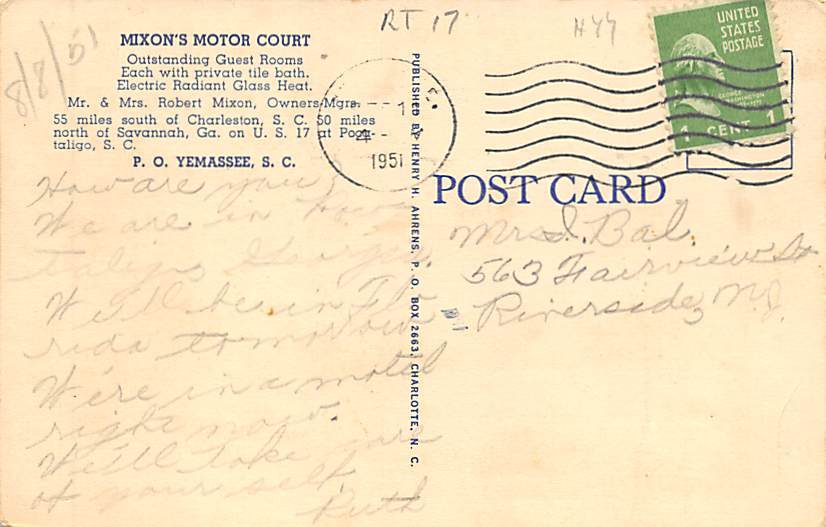 RT 17
H44
8/8/51
MIXON'S MOTOR COURT
Outstanding Guest Rooms
Each with private tile bath.
Electric Radiant Glass Heat.
Mr. & Mrs. Robert Mixon, Owners-Mgrs.
55 miles south of Charleston, S. C. 50 miles
north of Savannah, Ga. on U. S. 17 at Poco-
taligo, S. C.
P. O. YEMASSEE, S. C.
1951
UNITED
STATES
POSTAGE
1 CENT 1
PUBLISHED BY HENRY H. AHRENS, P. O. BOX 2663, CHARLOTTE, N. C.
POST CARD
How are you?
We are in
Georgia.
We'll be in Flo
rida tomorrow
We're in a motel
right now.
We'll take care
of your self
Ruth
Mrs. I. Bal.
563 Fairview St
Riverside, N.J.